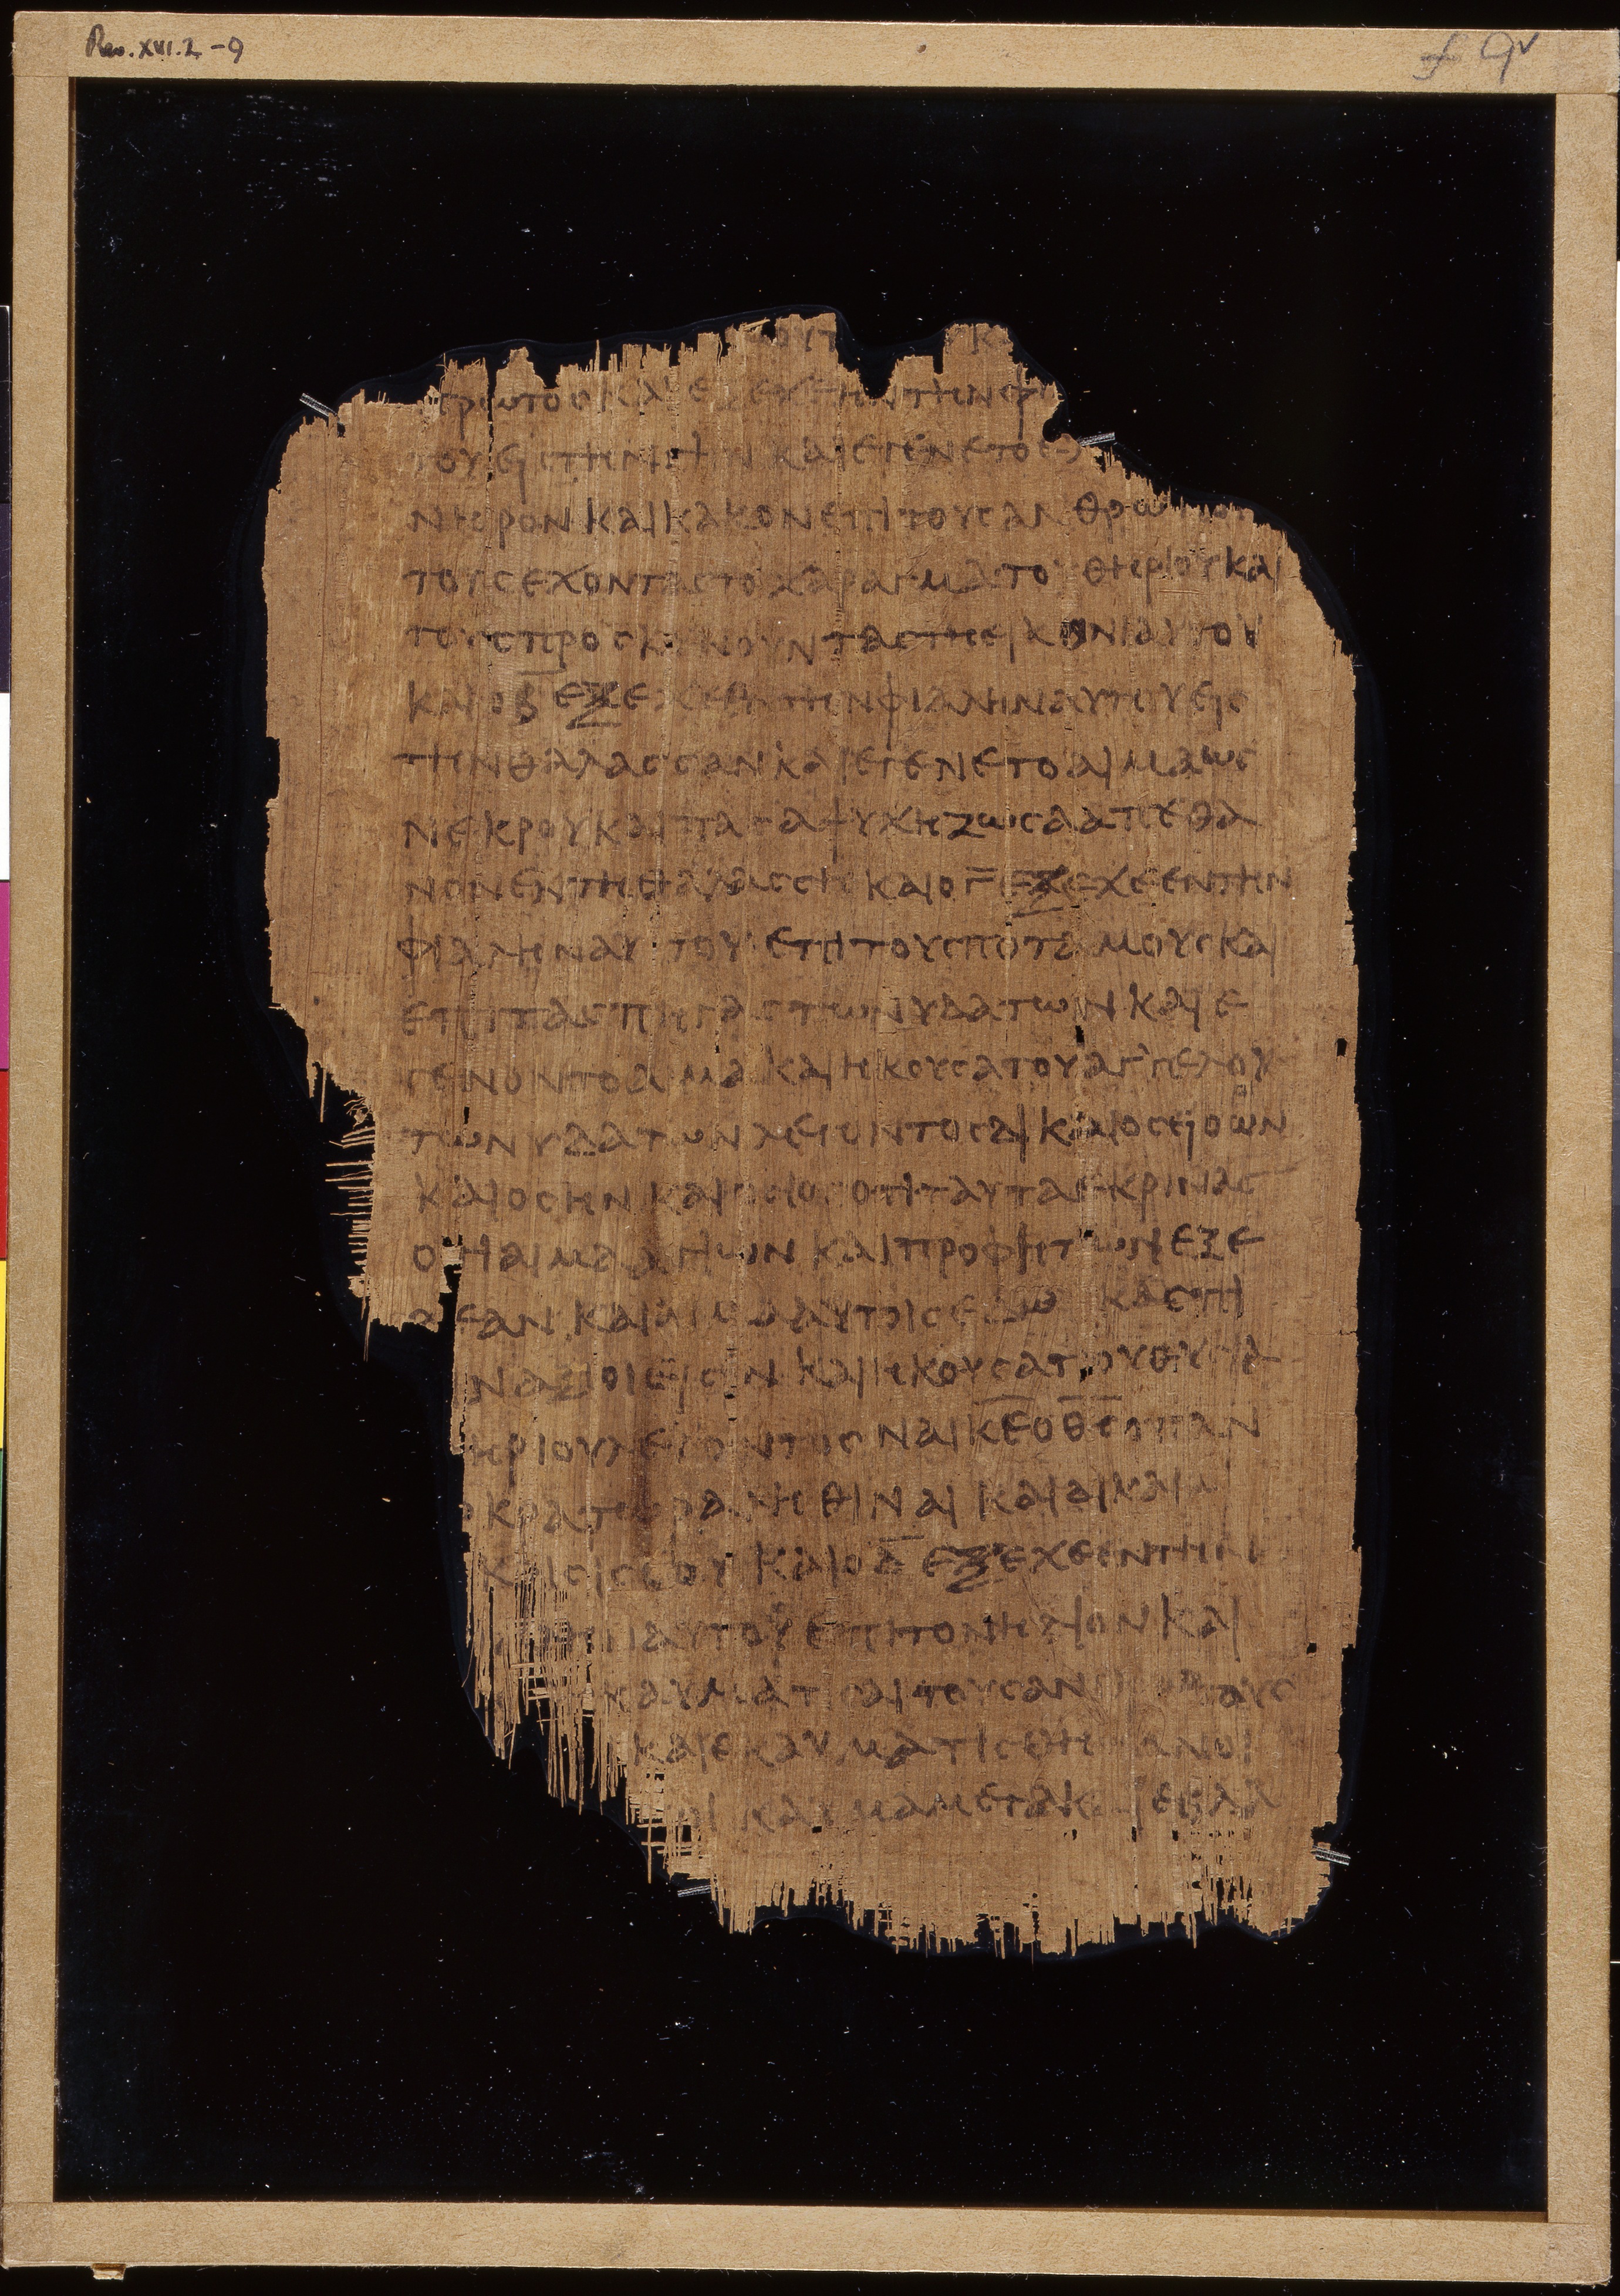 Rev. XVI. 2 - 9
f 9v
ΟΥΤ Κ
ΠΡωΤΟC ΚΑΙ ΕΞΕΧΕΕΝ ΤΗΝ ΦΙ
ΤΟΥ ΕΙC ΤΗΝ ΓΗΝ ΚΑΙ ΕΓΕΝΕΤΟ
ΝΗΡΟΝ ΚΑΙ ΚΑΚΟΝ ΕΠΙ ΤΟΥC ΑΝΘΡωΠΟΥ
ΤΟΥC ΕΧΟΝΤΑC ΤΟ ΧΑΡΑΓΜΑ ΤΟΥ ΘΗΡΙΟΥ ΚΑΙ
ΤΟΥC ΠΡΟCΚΥΝΟΥΝΤΑC ΤΗ ΕΙΚΟΝΙ ΑΥΤΟΥ
ΚΑΙ Ο Β̅ ΕΞΕΧΕΕΝ ΤΗΝ ΦΙΑΛΗΝ ΑΥΤΟΥ ΕΙC
ΤΗΝ ΘΑΛΑCCΑΝ ΚΑΙ ΕΓΕΝΕΤΟ ΑΙΜΑ ωC
ΝΕΚΡΟΥ ΚΑΙ ΠΑCΑ ΨΥΧΗ ΖωCΑ ΑΠΕΘΑ
ΝΟΝ ΕΝ ΤΗ ΘΑΛΑCCΗ ΚΑΙ Ο Γ̅ ΕΞΕΧΕΕΝ ΤΗΝ
ΦΙΑΛΗΝ ΑΥΤΟΥ ΕΠΙ ΤΟΥC ΠΟΤΑΜΟΥC ΚΑΙ
ΕΠΙ ΤΑC ΠΗΓΑC ΤωΝ ΥΔΑΤωΝ ΚΑΙ Ε
ΓΕΝΟΝΤΟ ΑΙΜΑ ΚΑΙ ΗΚΟΥCΑ ΤΟΥ ΑΓΓΕΛΟΥ
ΤωΝ ΥΔΑΤωΝ ΛΕΓΟΝΤΟC ΔΙΚΑΙΟC ΕΙ Ο ωΝ
ΚΑΙ ΟC ΗΝ ΚΑΙ ΟCΙΟC ΟΤΙ ΤΑΥΤΑ ΕΚΡΙΝΑC
ΟΤΙ ΑΙΜΑ ΑΓΙωΝ ΚΑΙ ΠΡΟΦΗΤωΝ ΕΞΕ
ΧΕΑΝ ΚΑΙ ΑΙΜΑ ΑΥΤΟΙC ΕΔω ΠΙ
Ν ΑΞΙΟΙ ΕΙCΙΝ ΚΑΙ ΗΚΟΥCΑ ΤΟΥ ΘΥCΙΑ
ΗΡΙΟΥ ΛΕΓΟΝΤΟC ΝΑΙ Κ̅Ε̅ Ο Θ̅C̅ Ο ΠΑΝ
ΟΚΡΑΤωΡ ΑΛΗΘΙΝΑΙ ΚΑΙ ΔΙΚΑΙΑΙ
ΚΡΙCΙC CΟΥ ΚΑΙ Ο Δ̅ ΕΞΕΧΕΕΝ ΤΗΝ
ΑΥΤΟΥ ΕΠΙ ΤΟΝ ΗΛΙΟΝ ΚΑΙ
ΚΑΥΜΑΤΙCΑΙ ΤΟΥC ΑΝΘΡωΠΟΥC
ΚΑΙ ΕΚΑΥΜΑΤΙCΘΗCΑΝ ΟΙ
ΟΙ ΚΑΥΜΑ ΜΕΓΑ ΚΑΙ ΕΒΛΑ